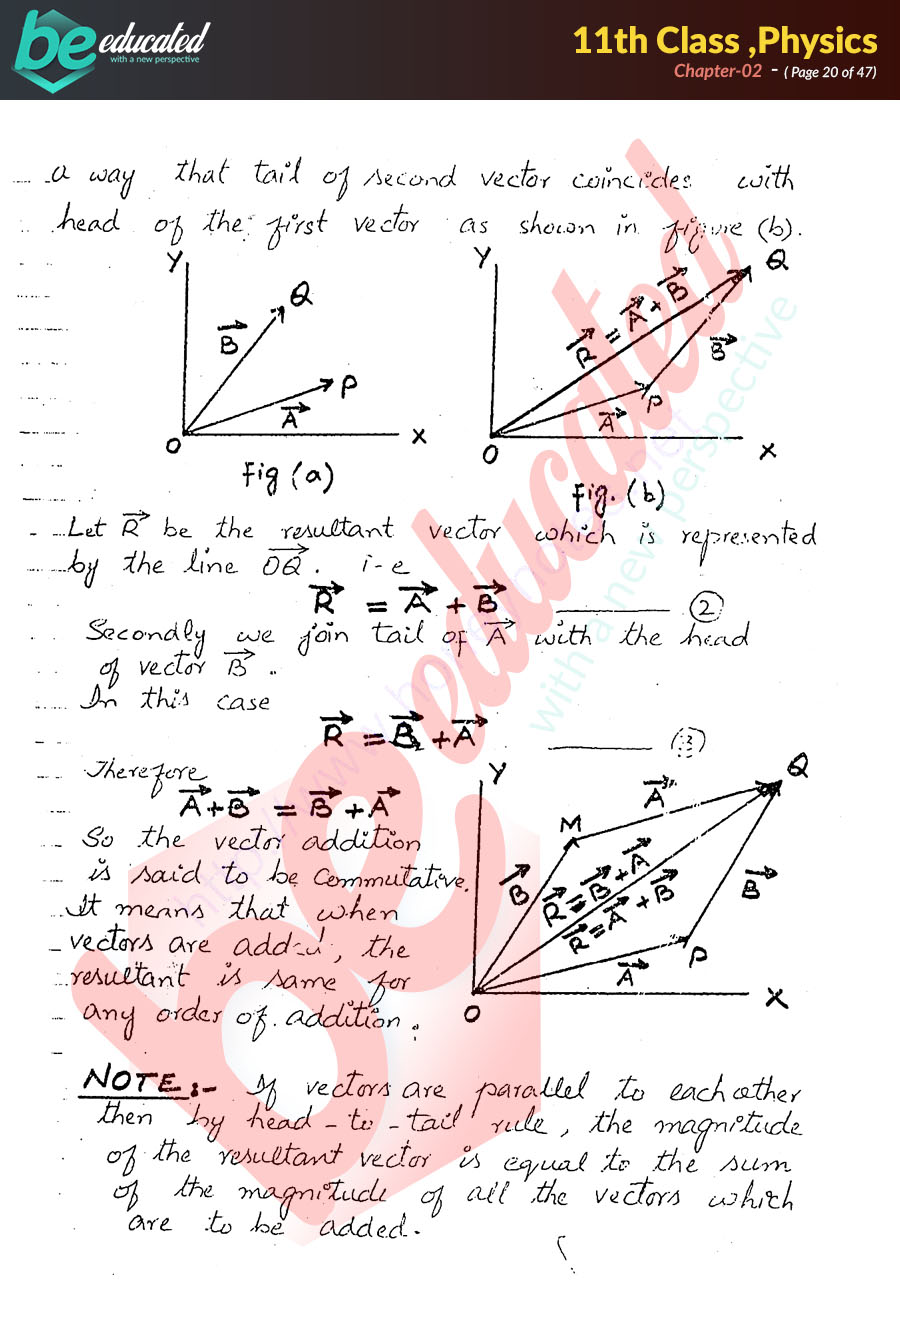 be educated
with a new perspective
11th Class ,Physics
Chapter-02 - ( Page 20 of 47)
a way that tail of second vector coincides with
head of the first vector as shown in figure (b).
Y
Q
B
P
A
O
X
Fig (a)
Y
Q
R = A + B
B
P
A
O
X
Fig. (b)
Let R be the resultant vector which is represented
by the line OQ. i-e
R = A + B ② 
Secondly we join tail of A with the head
of vector B.
In this case
R = B + A ③
Therefore
A + B = B + A
So the vector addition
is said to be commutative.
It means that when
vectors are added, the
resultant is same for
any order of addition.
Y
Q
A
M
B
R = B + A
R = A + B
B
P
A
O
X
NOTE:- If vectors are parallel to each other
then by head-to-tail rule, the magnitude
of the resultant vector is equal to the sum
of the magnitude of all the vectors which
are to be added.
be educated
with a new perspective